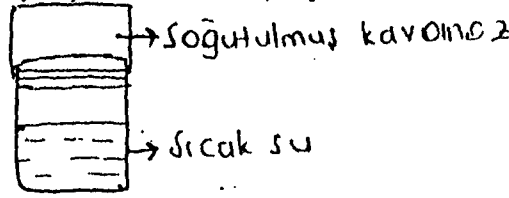 Soğutulmuş kavanoz
Sıcak su